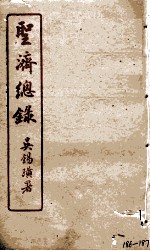 聖濟總錄
吳錫璜署
186-187